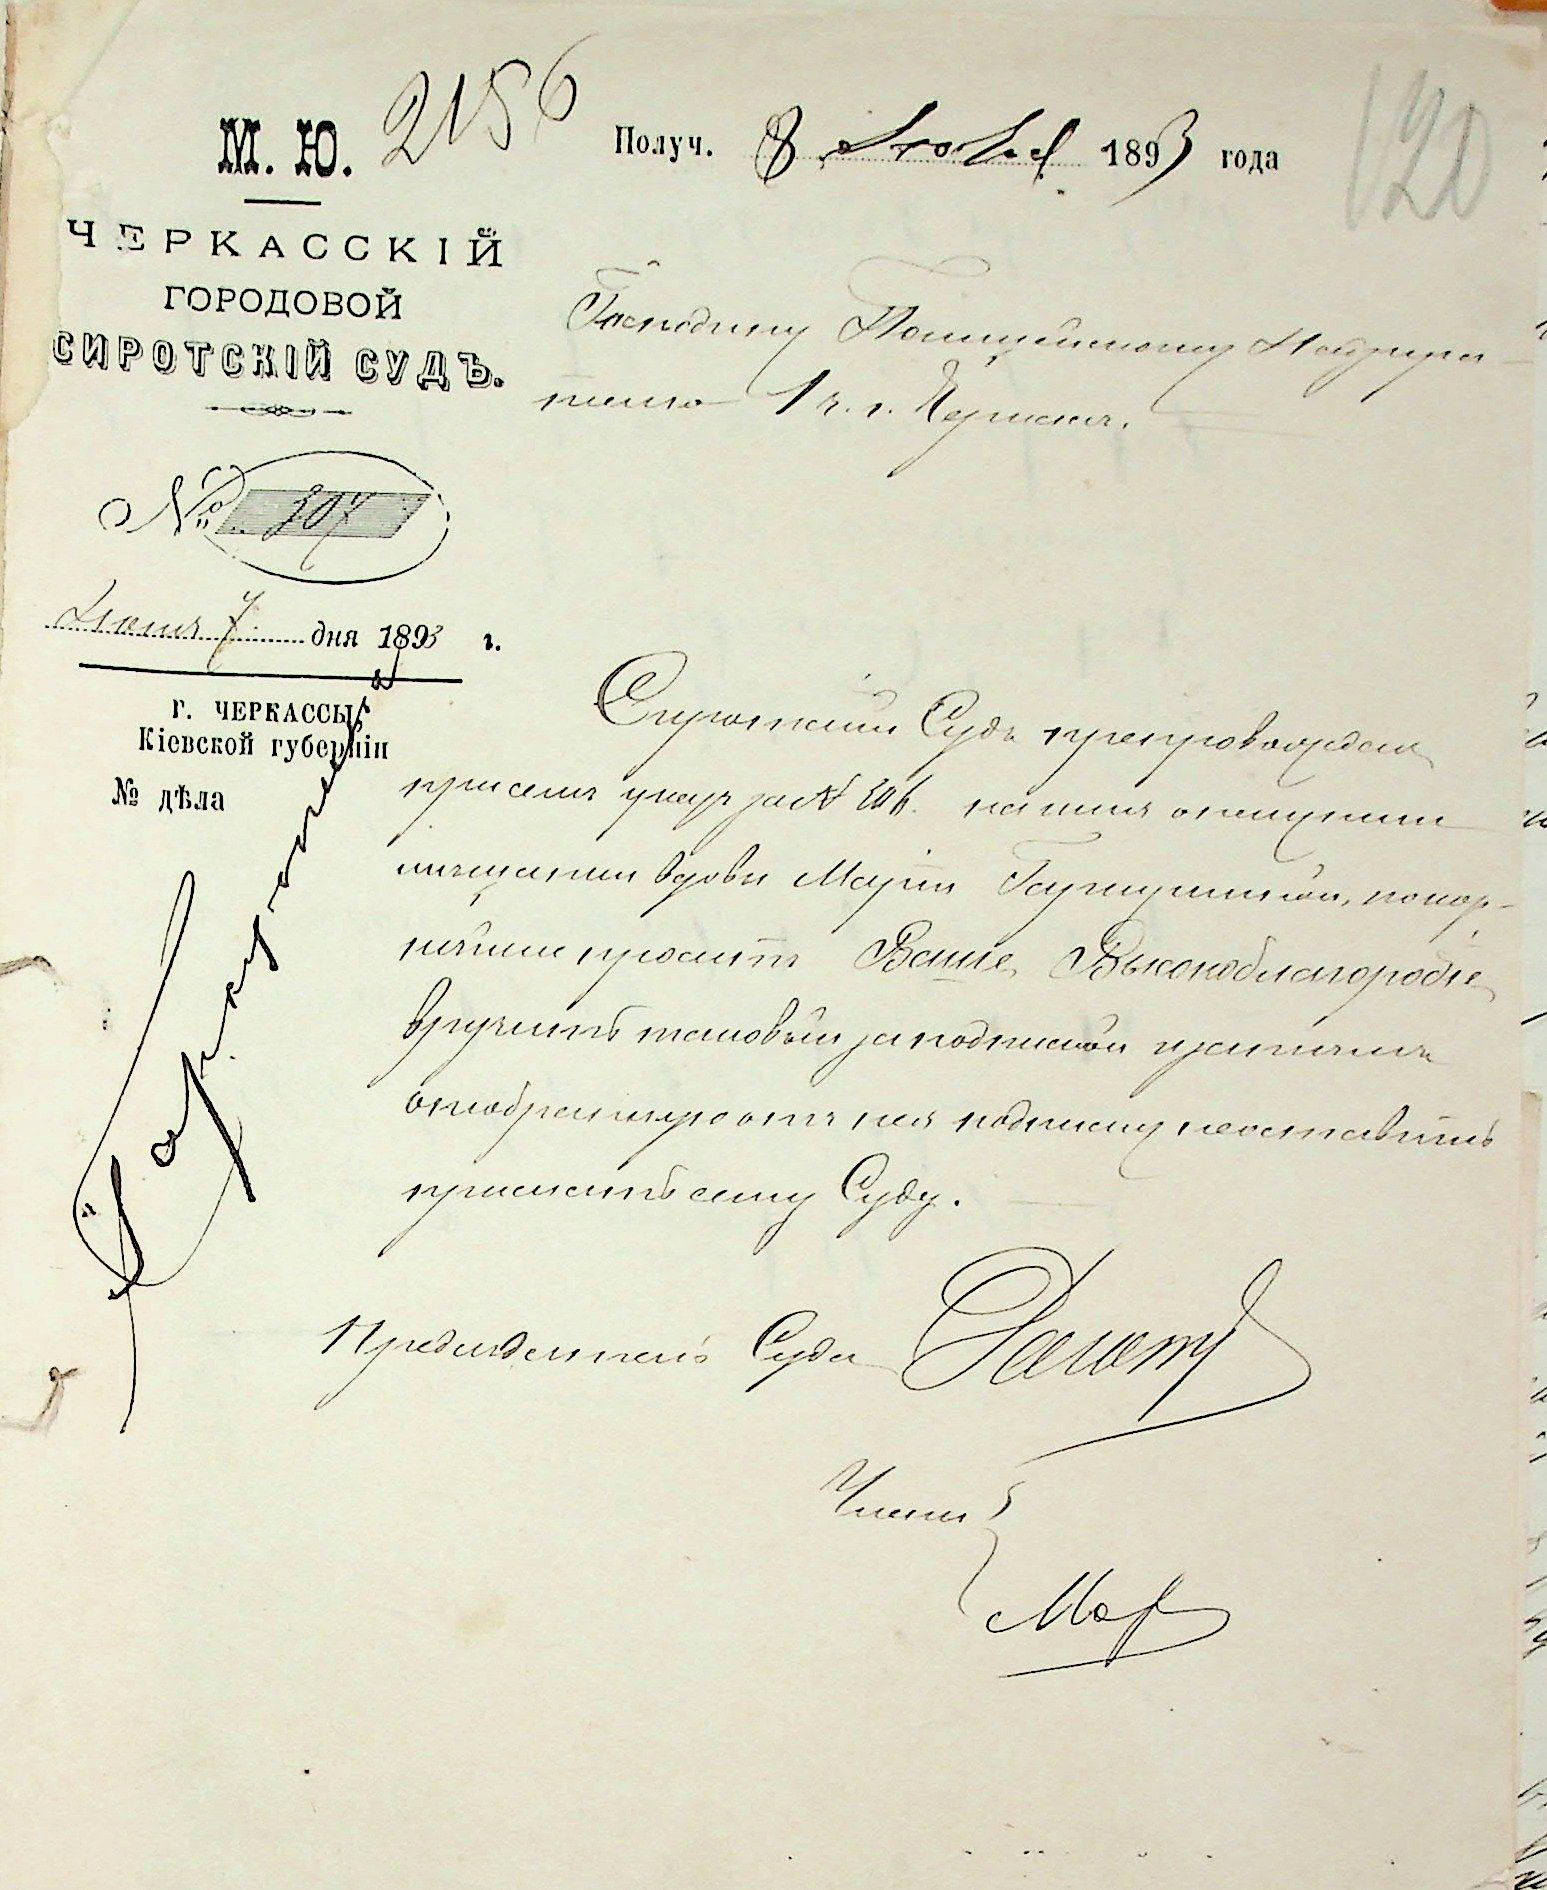 М. Ю.
2156
Получ. 8 Іюня 1893 года
120
ЧЕРКАССКІЙ
ГОРОДОВОЙ
СИРОТСКІЙ СУДЪ.
№ 307
Іюня 7 дня 1893 г.
г. ЧЕРКАССЫ,
Кіевской губерніи
№ дѣла
Господину Полицейскому Надзира-
телю 1 ч. г. Черкассъ.
Сиротскій Судъ препровождая
присемъ указъ за № 306. на имя опекунши
мѣщанки вдовы Маріи, покор-
нѣйше проситъ Ваше Высокоблагородіе
вручить таковый за подпиской и затѣмъ
отобранную отъ нея подписку неоставить
прислать сему Суду.
Предсѣдатель Суда
Члены